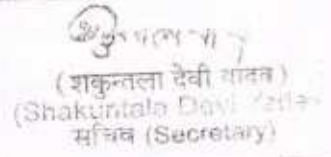 (शकुन्तला देवी यादव)
(Shakuntala Devi
सचिव (Secretary)